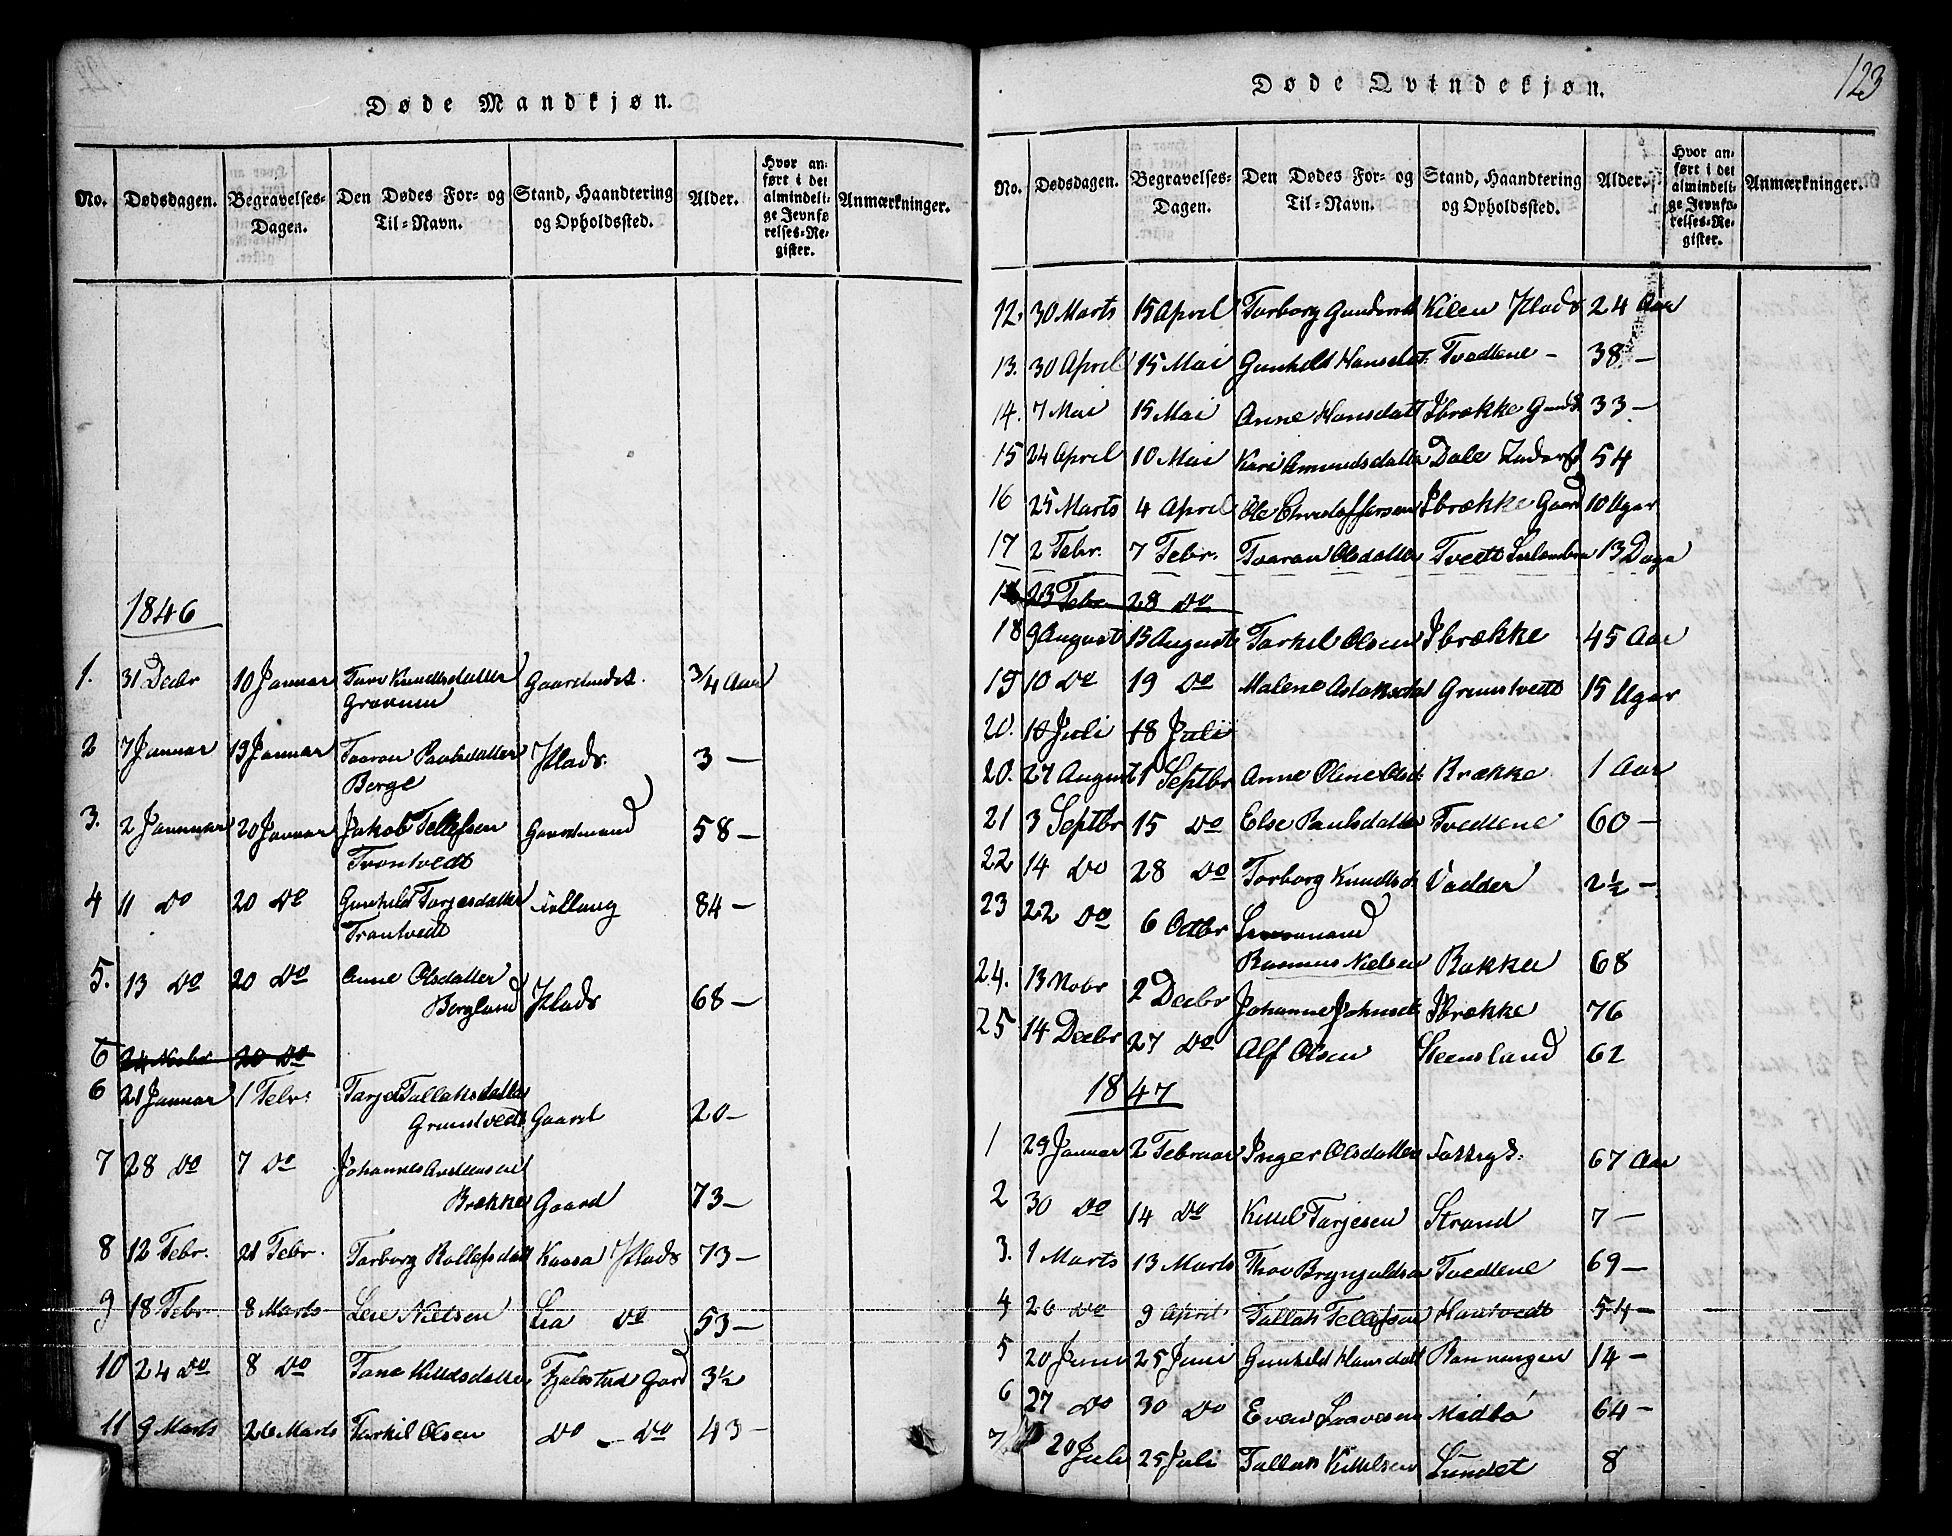 Døde Mandkjøn.
No. Dødsdagen. Begravelses-Dagen. Den Dødes For- og Til-Navn. Stand, Haandtering og Opholdssted. Alder. Hvor anført i det almindelige Jevnførelses-Register. Anmærkninger.
1846
1. 31 Decbr 10 Januar Knudsdatter 3/4 Aar
2 7 Januar 19 Januar Taaran Paulsdatter Plads 3 —
Berge
3. 2 Januar 20 Januar Jakob Tellefsen Gaardmand 58 —
Trontvedt
4 11 Do 20 Do Gunhild Tarjesdatter 84 —
Trontvedt
5. 13 Do 20 Do Anne Olsdatter
Bergland Plads 68 —
6 20 Do
6 21 Januar 1 Febr: Tarje Tallaksdatter
Grimstvedt Gaard 20 —
7 28 Do 7 Do Johannes
Brække Gaard 73 —
8 12 Febr. 21 Febr. Torborg Rollefsdatt Kaasa Plads 73 —
9 18 Febr 8 Marts Nielsen Lia Do 53 —
10 24 Do 8 Do Tone Kittilsdatter Gard 3½
11 9 Marts 26 Marts Tarkil Olsen Do — Do 43 —
Døde Qvindekjøn.
123
No. Dødsdagen. Begravelses-Dagen. Den Dødes For- og Til-Navn. Stand, Haandtering og Opholdssted. Alder. Hvor anført i det almindelige Jevnførelses-Register. Anmærkninger.
12. 30 Marts 15 April Torborg Kilen Plads 24 Aar
13. 30 April 15 Mai Gunhild Hansdat: Tvedtene — 38 —
14. 7 Mai 15 Mai Anne Hansdatt Ibrække 33 —
15 24 April 10 Mai Kari Amundsdatter Dale 54
16 25 Marts 4 April Ole Christoffersen Ibrække Gaard 10 Uger
17 2 Febr. 7 Febr. Taaran Olsdatter Tvedt 13 Dage
18 23 Febr 28 Do
18 9 August 15 August Tarkil Olsen Ibrække 45 Aar
19 10 Do 19 Do Malene Aslaksdat Grimstvedt 15 Uger
20. 10 Juli 18 Juli
20. 27 August 21 Septbr Anne Oline Olsd: Brække 1 Aar
21 3 Septbr 15 Do Else Paulsdatter Tvedtene 60 —
22 14 Do 28 Do Torborg Knudtsd: Vadder 2½ —
23 22 Do 6 Octbr
Rasmus Nielsen Bakken 68
24. 13 Nobr 2 Decbr Johanne Johnsd: Ibrække 76
25 14 Decbr 27 Do Alf Olsen Steensland 62
1847
1 29 Januar 2 Februar Inger Olsdatter 67 Aar
2 30 Do 14 Do Kittil Tarjesen Strand 7 —
3. 1 Marts 13 Marts Thov Brynjuldsen Tvedtene 69 —
4 26 Do 9 April Tallak Tellefsen Haatvedt 54 —
5 20 Juni 25 Juni Gunhild Hansdatt 14 —
6 27 Do 30 Do Even Midbø 64 —
7 20 Juli 25 Juli Tallak Kittilsen Lundet 8